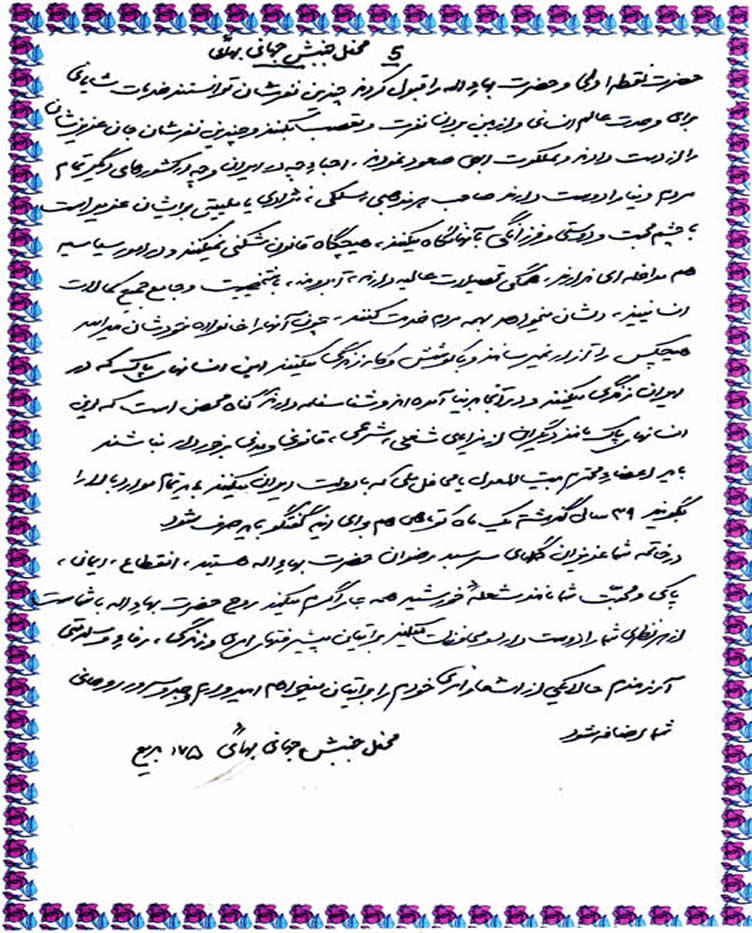 5 محفل جنبش جهانی بهائی
حضرت نقطه اولی و حضرت بهاءاله را قبول کردند چندین نفرشان توانستند خدمات شایانی
برای وحدت عالم انسانی و از بین بردن نفرت و تعصب بکنند و چندین نفرشان جان عزیزشان
را از دست دادند و بملکوت ابهی صعود نمودند، احباء چه در ایران و چه از کشورهای دیگر تمام
مردم دنیا را دوست دارند صاحب هر مذهبی، مسلکی، نژادی یا ملیتی برایشان عزیز است
با چشم محبت و دوستی و فرزانگی بآنها نگاه میکنند، هیچگاه قانون شکنی نمیکنند و در امور سیاسیه
هم مداخله ای ندارند، همگی تحصیلات عالیه دارند، آبرومند، با شخصیت و جامع جمیع کمالات
انسانیند، دلشان میخواهد بهمه مردم خدمت کنند، چون آنها را خانواده خودشان میدانند
هیچکس را آزار نمیرسانند و با کوشش و کار زندگی میکنند این انسانهای پاک که در
ایران زندگی میکنند و در آنجا بدنیا آمده اند و شناسنامه دارند گناه محض است که این
انسانهای پاک مانند دیگران از مزایای شغلی، شرعی، قانونی و مدنی برخوردار نباشند
باید اعضاء محترم بیت العدل یا محافل ملی که با دولت ایران میکنند باید تمام موارد بالا را
بگویند ۳۹ سالی گذشته یک ماه کوتاهی هم برای این گفتگو باید صرف شود
در خاتمه شما عزیزان گلهای سرسبد رضوان حضرت بهاءاله هستید، انقطاع، ایمانی،
پاکی و محبت شما مانند شعله خورشید همه جا را گرم میکند روح حضرت بهاءاله با شماست
از هر نظری شما را دوست دارند و محافظت میکنند برایتان پیشرفتهای امری و زندگی، رفاه و سلامتی
آرزومندم حالا یکی از اشعار امری خودم را برایتان مینویسم امیدوارم بوجد و سرور روحانی
شما اضافه شود
محفل جنبش جهانی بهائی ۱۷۵ بدیع